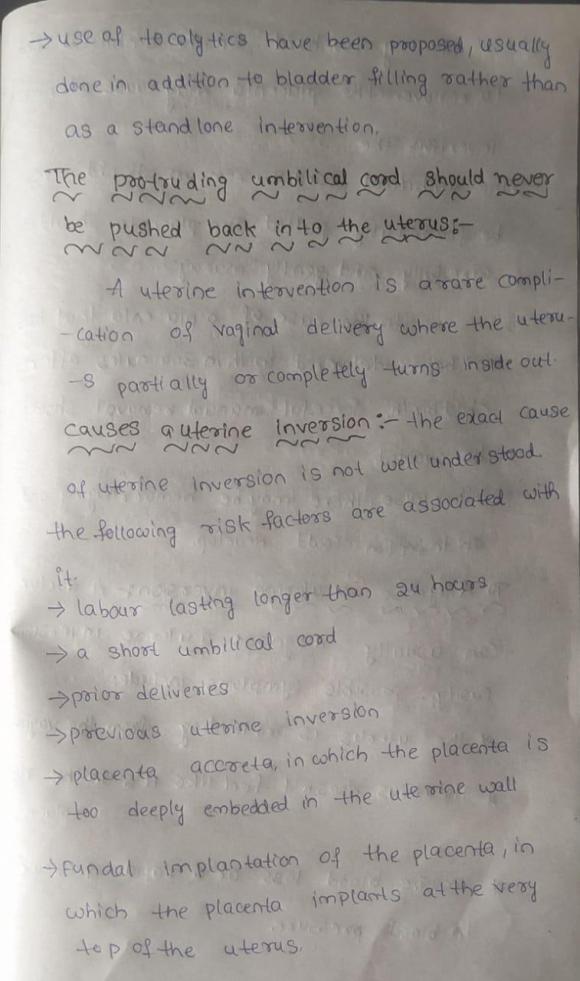 → use of tocolytics have been proposed, usually
done in addition to bladder filling rather than
as a standlone intervention.
The protruding umbilical cord should never
be pushed back into the uterus:-
A uterine intervention is a rare compli-
-cation of vaginal delivery where the uteru-
-s partially or completely turns inside out.
causes a uterine inversion :- the exact cause
of uterine inversion is not well understood.
the following risk factors are associated with
it.
→ labour lasting longer than 24 hours
→ a short umbilical cord
→ prior deliveries
→ previous uterine inversion
→ placenta accreta, in which the placenta is
too deeply embedded in the uterine wall
→ fundal implantation of the placenta, in
which the placenta implants at the very
top of the uterus.